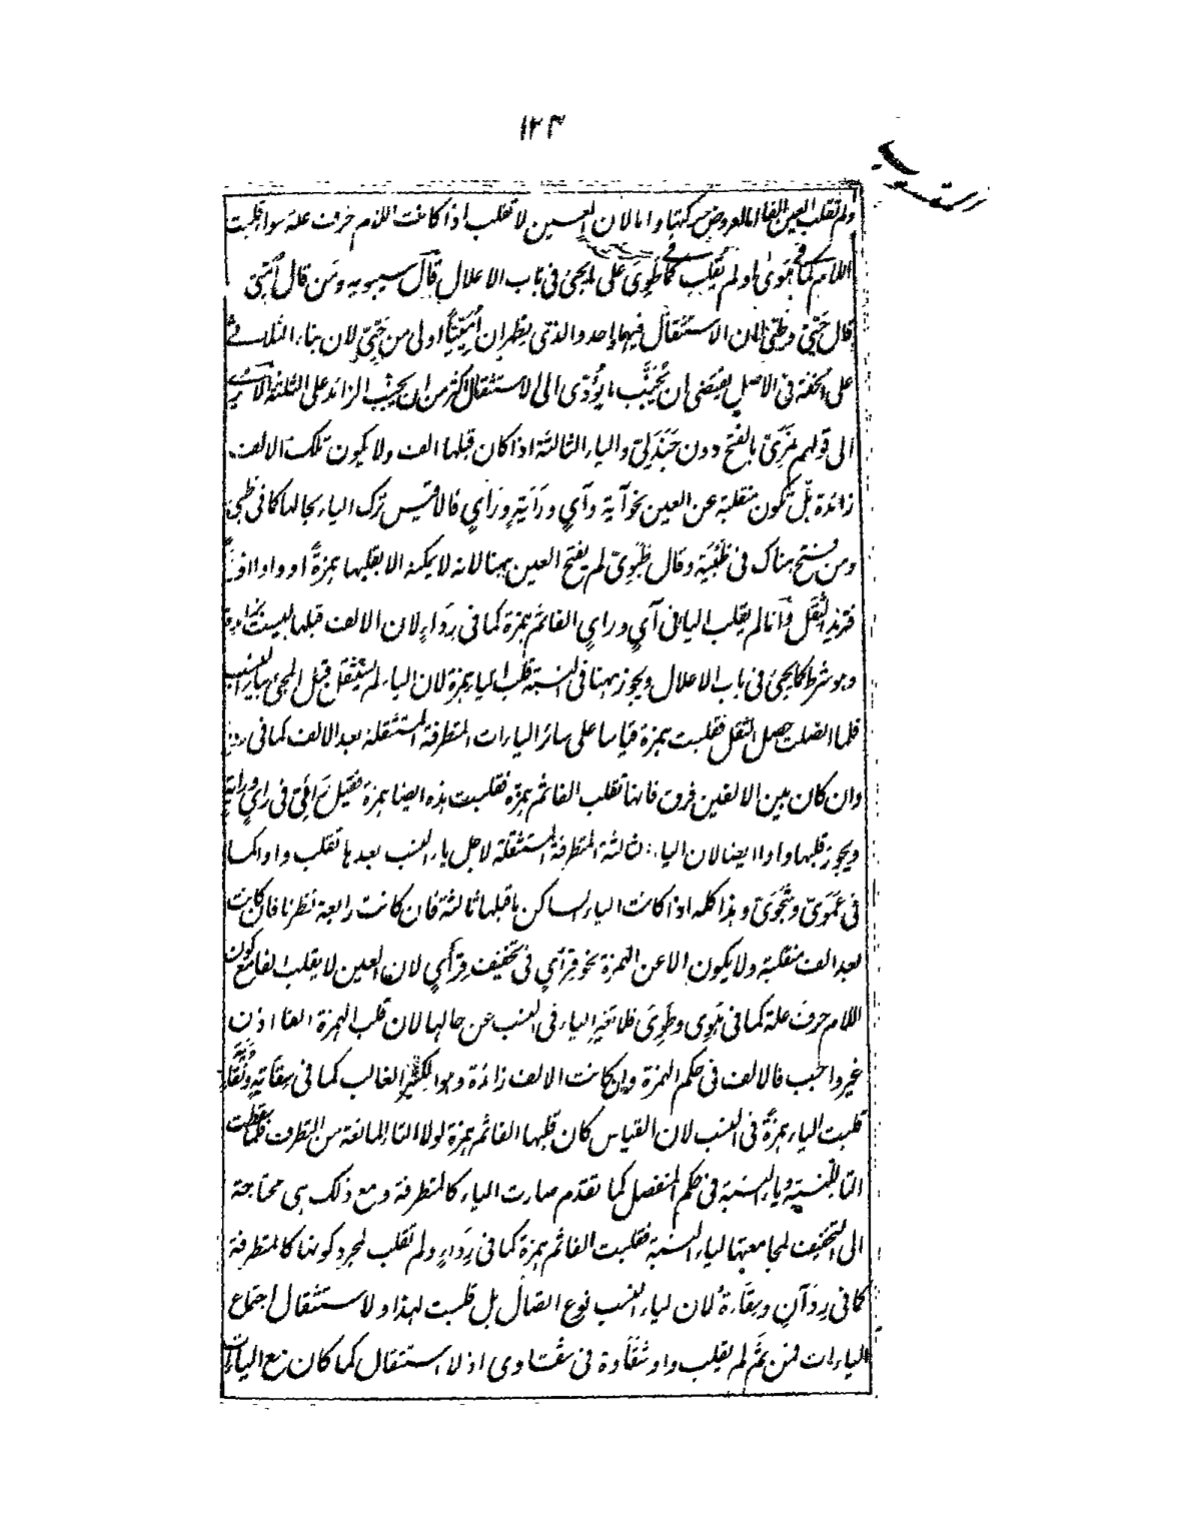 ١٢٣
المنسوب
ولم تقلب العين الفا اما لعروض حركتها واما لان العين لا تقلب اذا كانت اللام حرف علة سواء قلبت
اللام كما فى هوى او لم تقلب كما فى طوى على ما يجئ فى باب الاعلال قال سيبويه ومن قال اميّى
قال حيّى وطيّى لان الاستثقال فيهما واحد والذى يظهر ان اميّيّا اولى من حيّىّ لان بناء الثلاثى
على الخفة فى الاصل يقتضى ان يجنّب ما يؤدى الى الاستثقال اكثر من ان يجنب الزائد على الثلثة الا ترى
الى قولهم نمرىّ بالفتح دون جندلىّ والياء الثالثة اذا كان قبلها الف ولا يكون تلك الالف
زائدة بل تكون منقلبة عن العين نحو آية وآى وراية وراى فالاقيس ترك الياء بحالها كما فى ظبىّ
ومن فتح هناك فى ظبية وقال ظبوىّ لم يفتح العين ههنا لانه لا يمكنه الا بقلبها همزة او واوا او
فتزيد الثقل وانما لم يقلب الياء فى آى وراى الفا ثم همزة كما فى رداء لان الالف قبلها ليست بزائدة
وهو شرط كما يجئ فى باب الاعلال ويجوز ههنا فى النسبة قلب الياء همزة لان الياء لم يستثقل قبل المجئ بياء النسب
فلما اتصلت حصل الثقل فقلبت همزة قياسا على سائر الياءات المتطرفة المستثقلة بعد الالف كما فى رداء
وان كان بين الالفين فرق فانها تقلب الفا ثم همزة فقلبت هذه ايضا همزة فقيل رائىّ فى راى وراية
ويجوز قلبها واوا ايضا لان الياء الثالثة المتطرفة المستثقلة لاجل ياء النسب بعدها تقلب واوا كما
فى عموىّ وشجوىّ وهذا كله اذا كانت الياء الساكن ما قبلها ثالثة فان كانت رابعة نظرنا فان كانت
بعد الف منقلبة ولا يكون الا عن الهمزة نحو قراى فى تخفيف قرأى لان العين لا يقلب الفا مع كون
اللام حرف علة كما فى هوى وطوى فلا تغير الياء فى النسب عن حالها لان قلب الهمزة الفا اذن
غير واجب فالالف فى حكم الهمزة وان كانت الالف زائدة وهو الكثير الغالب كما فى سقاية ونقاية
قلبت الياء همزة فى النسب لان القياس كان قلبها الفا ثم همزة لولا التاء المانعة من التطرف فلما سقطت
التاء للنسبة وياء النسبة فى حكم المنفصل كما تقدم صارت الياء كالمتطرفة ومع ذلك هى محتاجة
الى التخفيف لمجامعتها لياء النسبة فقلبت الفا ثم همزة كما فى رداء ولم تقلب لمجرد كونها كالمتطرفة
كما فى رداآن وسقاءة لان لياء النسب نوع اتصال بل قلبت لهذا ولاستثقال اجتماع
الياءات فمن ثم لم يقلب واو شقاوة فى شقاوى اذ لا استثقال كما كان مع الياءات